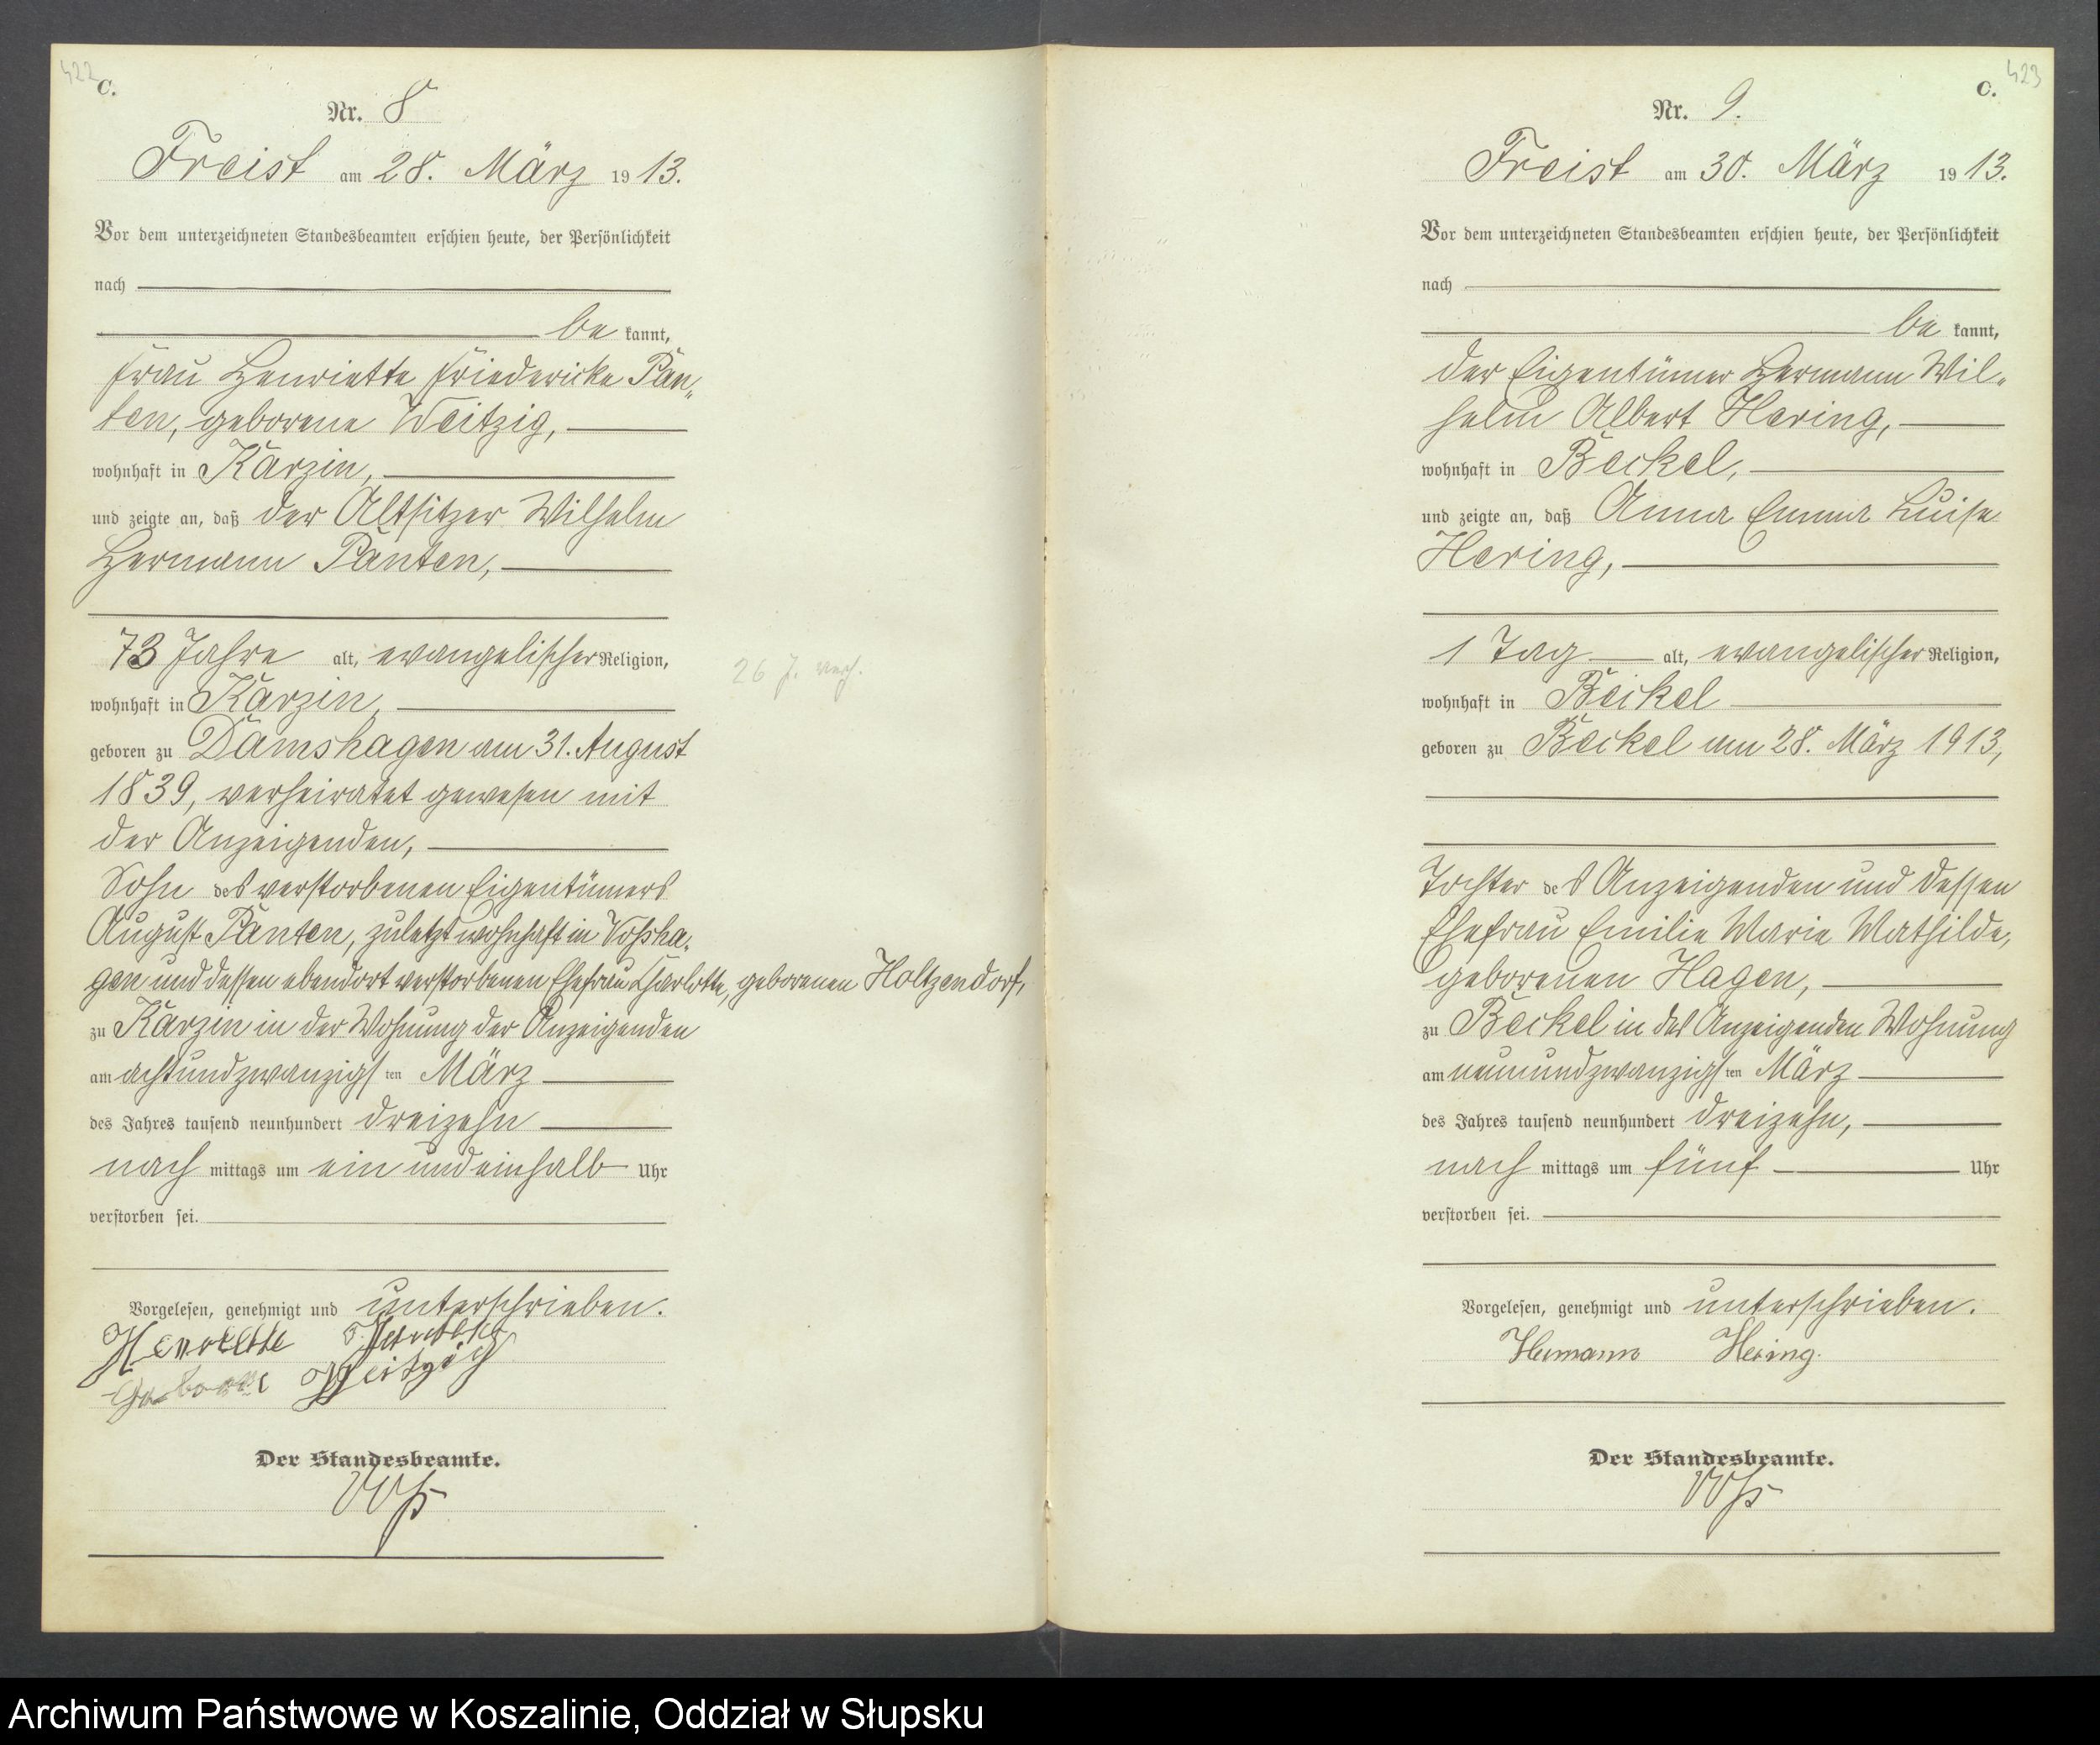 422
C.
Nr. 8
Freist am 28. März 1913.
Vor dem unterzeichneten Standesbeamten erschien heute, der Persönlichkeit
nach
be kannt,
Frau Henriette Friedericke Pan„
ten, geborene Weitzig,
wohnhaft in Karzin,
und zeigte an, daß der Altsitzer Wilhelm
Hermann Panten,
73 Jahre alt, evangelischer Religion,
wohnhaft in Karzin,
geboren zu Damshagen am 31. August
1839, verheiratet gewesen mit
der Anzeigenden,
Sohn des verstorbenen Eigentümers
August Panten, zuletzt wohnhaft in Vossha„
gen und dessen ebendort verstorbenen Ehefrau Charlotte, geborenen Holtzendorf,
zu Karzin in der Wohnung der Anzeigenden
am achtundzwanzigsten März
des Jahres tausend neunhundert dreizehn
nach mittags um ein und einhalb Uhr
verstorben sei.
Vorgelesen, genehmigt und unterschrieben.
Henriette
Weitzig
Der Standesbeamte.
26 J. verh.
423
C.
Nr. 9.
Freist am 30. März 1913.
Vor dem unterzeichneten Standesbeamten erschien heute, der Persönlichkeit
nach
be kannt,
der Eigentümer Hermann Wil„
helm Albert Hering,
wohnhaft in Beckel,
und zeigte an, daß Anna Emma Luise
Hering,
1 Tag alt, evangelischer Religion,
wohnhaft in Beckel
geboren zu Beckel am 28. März 1913,
Tochter des Anzeigenden und dessen
Ehefrau Emilie Marie Mathilde,
geborenen Hagen,
zu Beckel in des Anzeigenden Wohnung
am neunundzwanzigsten März
des Jahres tausend neunhundert dreizehn,
nach mittags um fünf Uhr
verstorben sei.
Vorgelesen, genehmigt und unterschrieben.
Hermann Hering.
Der Standesbeamte.
Archiwum Państwowe w Koszalinie, Oddział w Słupsku